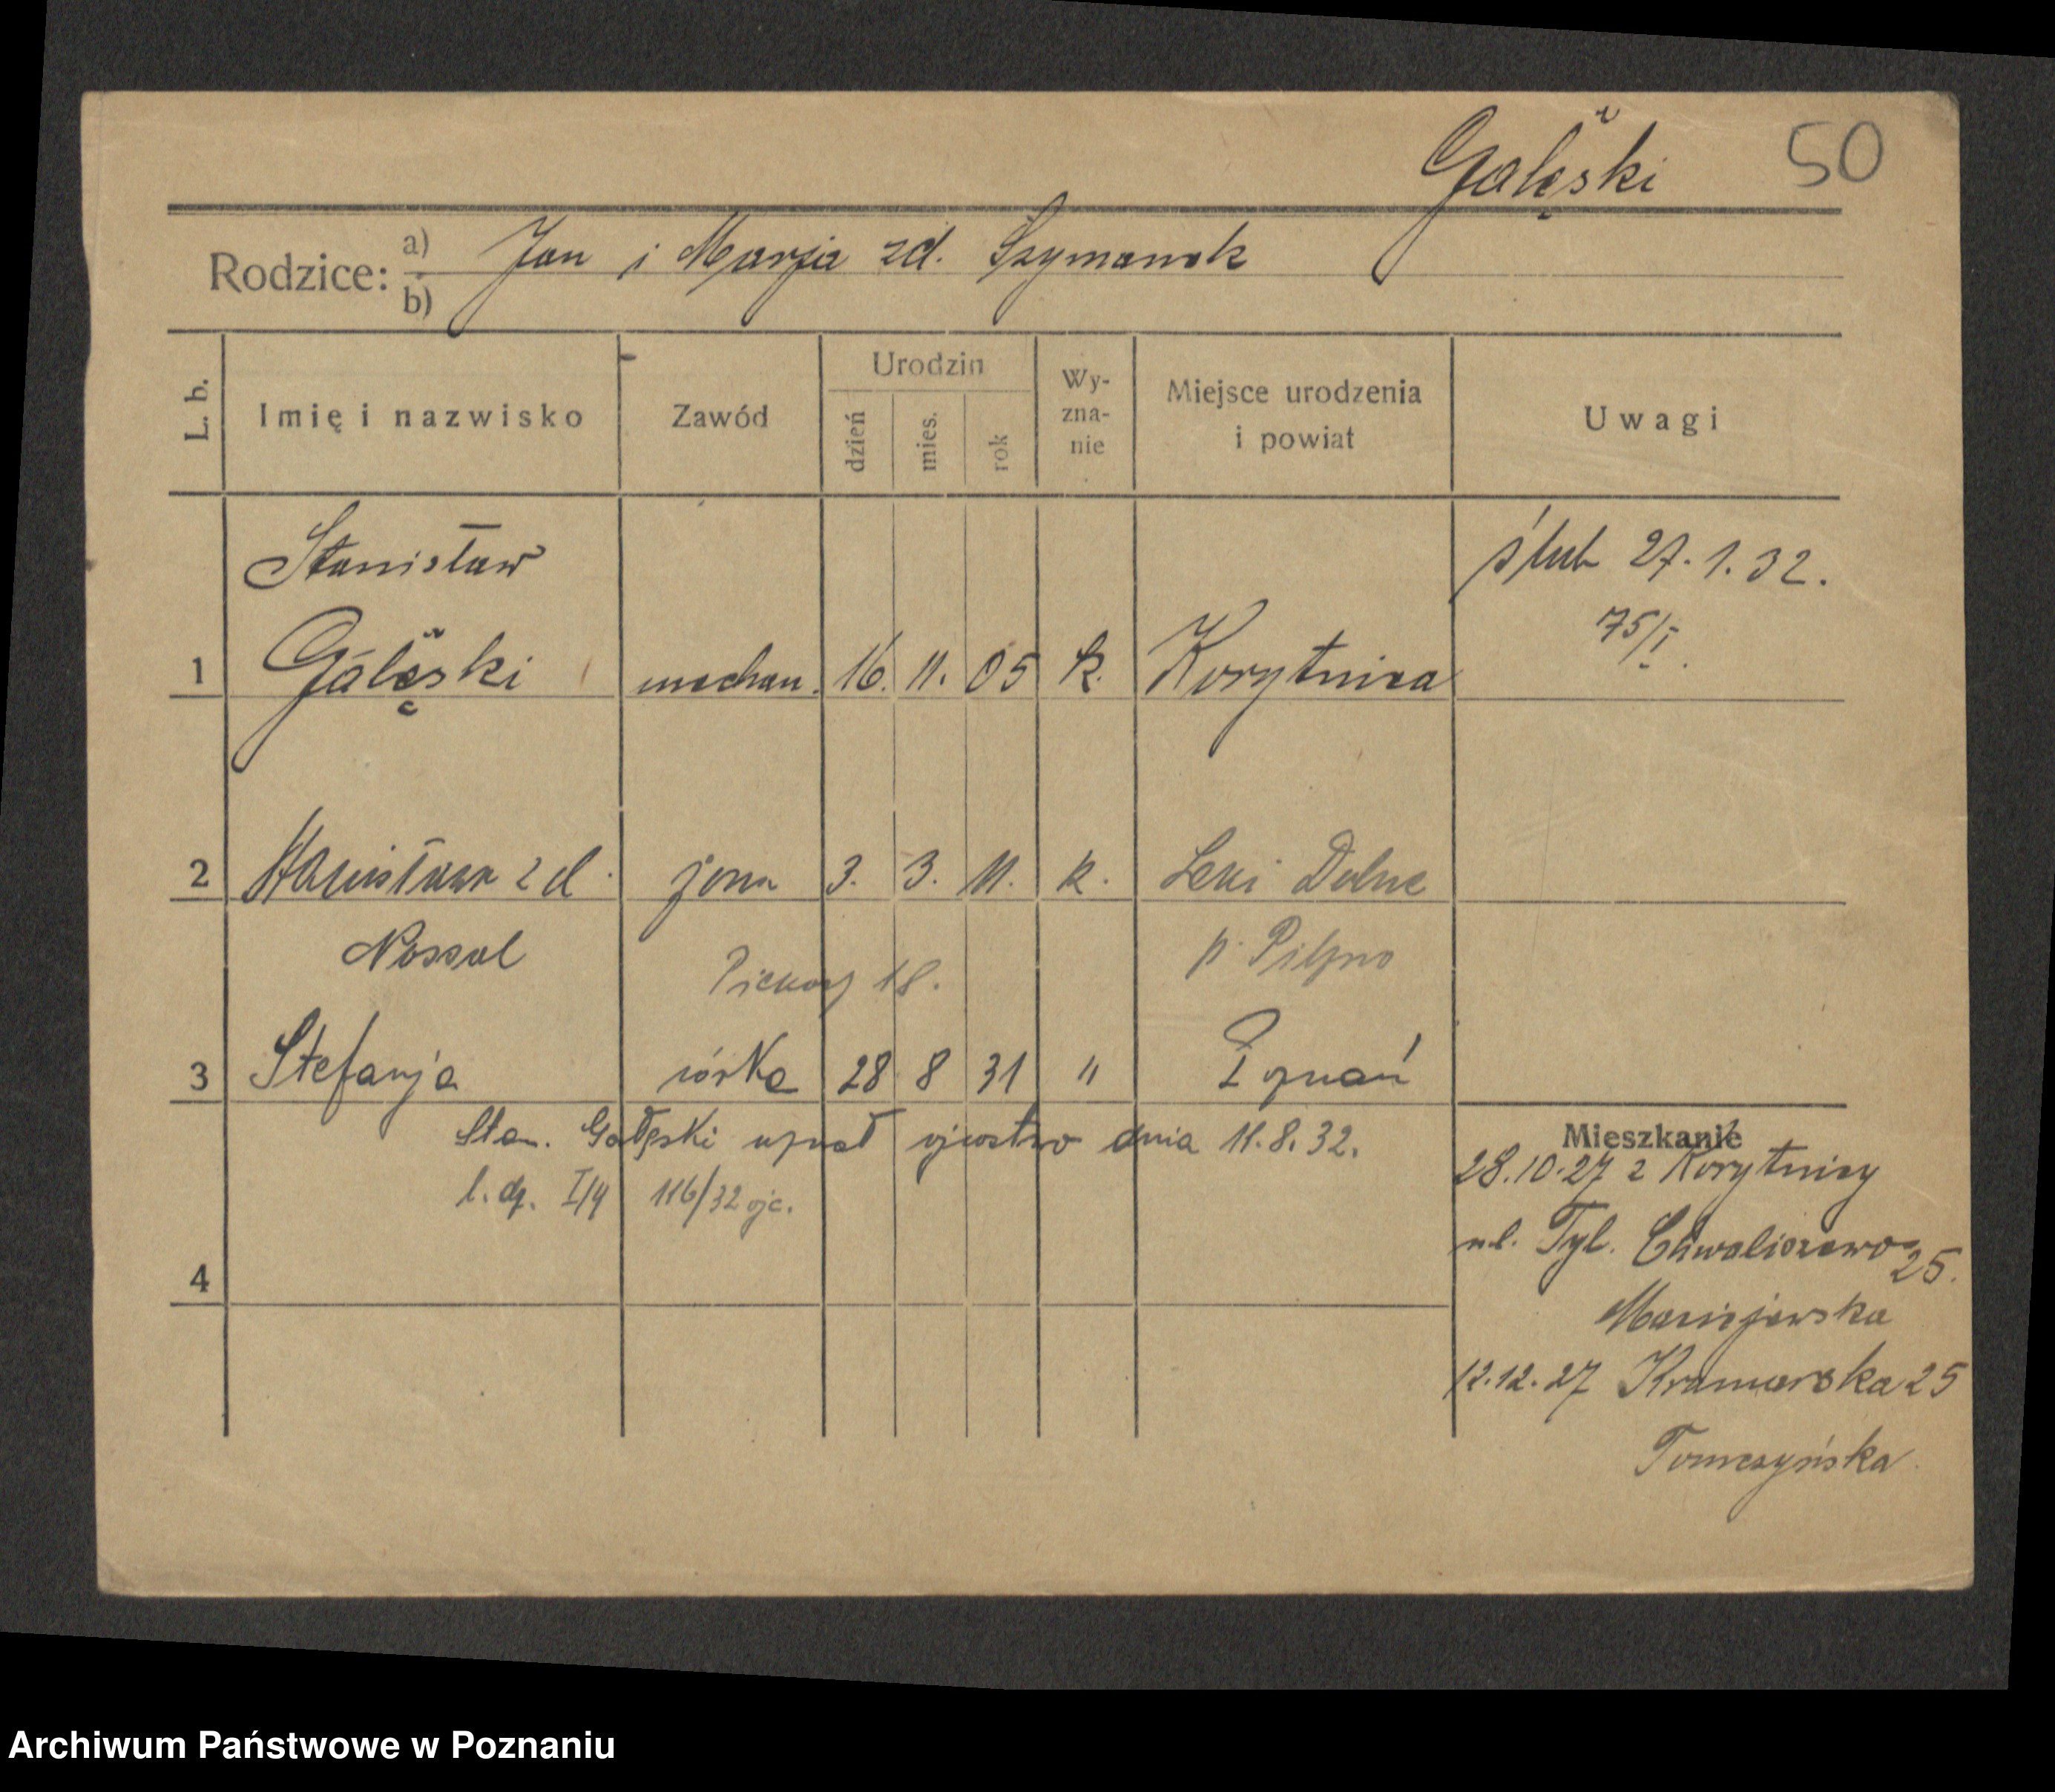 Gałęski 50
Rodzice: a) Jan i Marja zd. Szymanek
b)
L. b. Imię i nazwisko Zawód Urodzin dzień mies. rok Wy-zna-nie Miejsce urodzenia i powiat Uwagi
Stanisław ślub 27.1.32.
75/I.
1 Gałęski mechan. 16. 11. 05 k. Korytnica
2 Stanisława zd. żona 3. 3. 11. k. Łęki Dolne
Nossal p. Pilzno
Piekary 18.
3 Stefanja córka 28 8 31 " Poznań
Stan. Gałęski uznał ojcostwo dnia 11.8.32.
l. dz. I/4 116/32 ojc.
4
Mieszkanie
28.10.27 z Korytnicy
ul. Tyl. Chwaliszewo 25.
Maciejewska
12.12.27 Kramarska 25
Tomczyńska
Archiwum Państwowe w Poznaniu